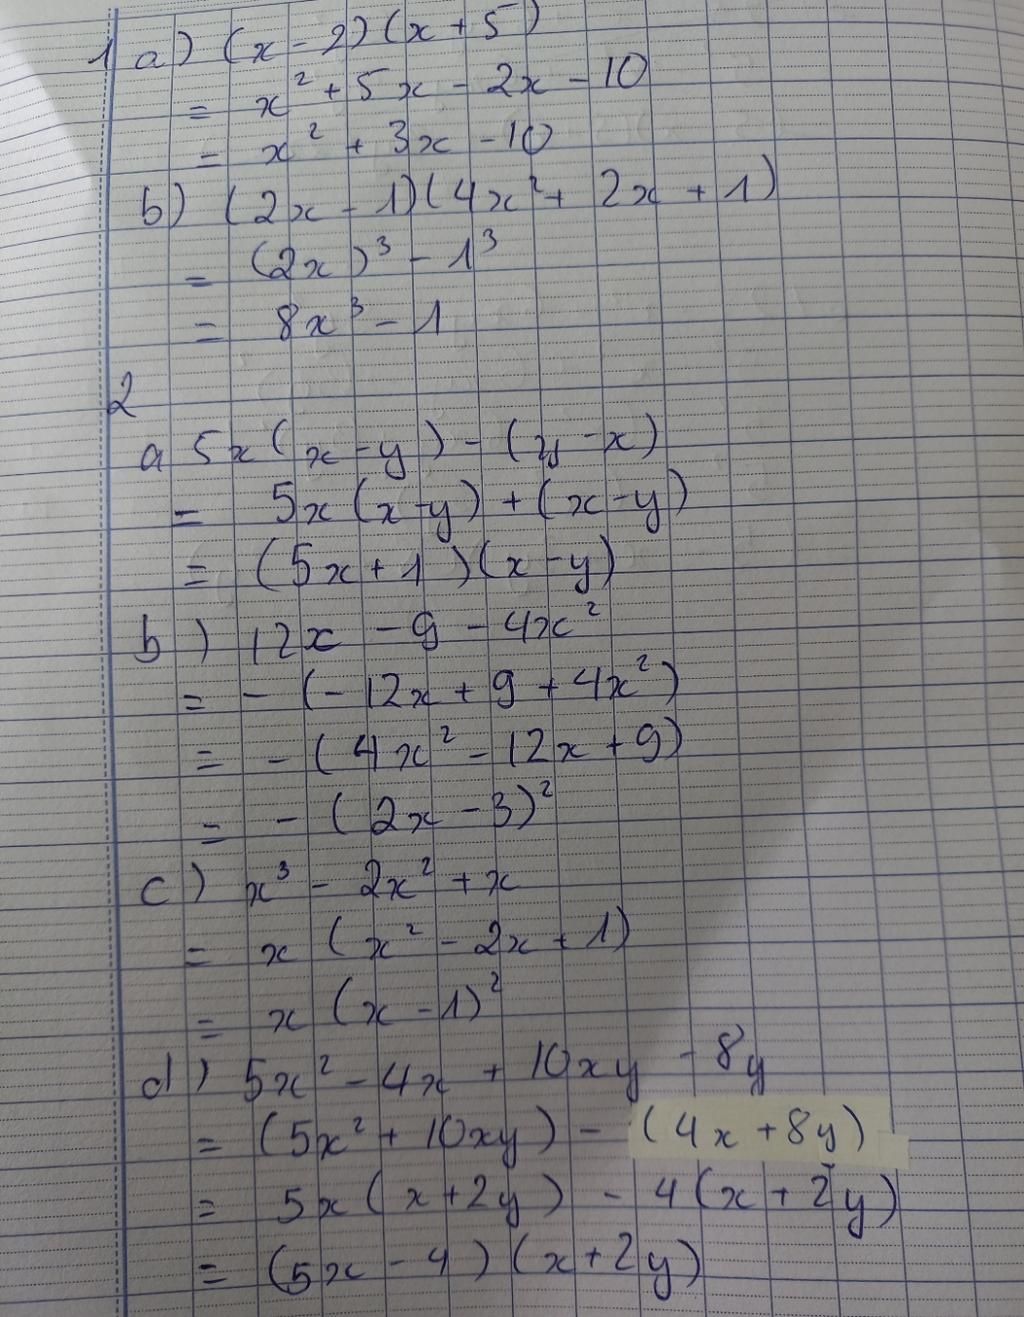 1 a) (x - 2)(x + 5)
= x² + 5x - 2x - 10
= x² + 3x - 10
b) (2x - 1)(4x² + 2x + 1)
= (2x)³ - 1³
= 8x³ - 1
2
a 5x(x - y) - (y - x)
= 5x(x - y) + (x - y)
= (5x + 1)(x - y)
b) 12x - 9 - 4x²
= - (- 12x + 9 + 4x²)
= - (4x² - 12x + 9)
= - (2x - 3)²
c) x³ - 2x² + x
= x (x² - 2x + 1)
= x (x - 1)²
d) 5x² - 4x + 10xy - 8y
= (5x² + 10xy) - (4x + 8y)
= 5x(x + 2y) - 4(x + 2y)
= (5x - 4)(x + 2y)